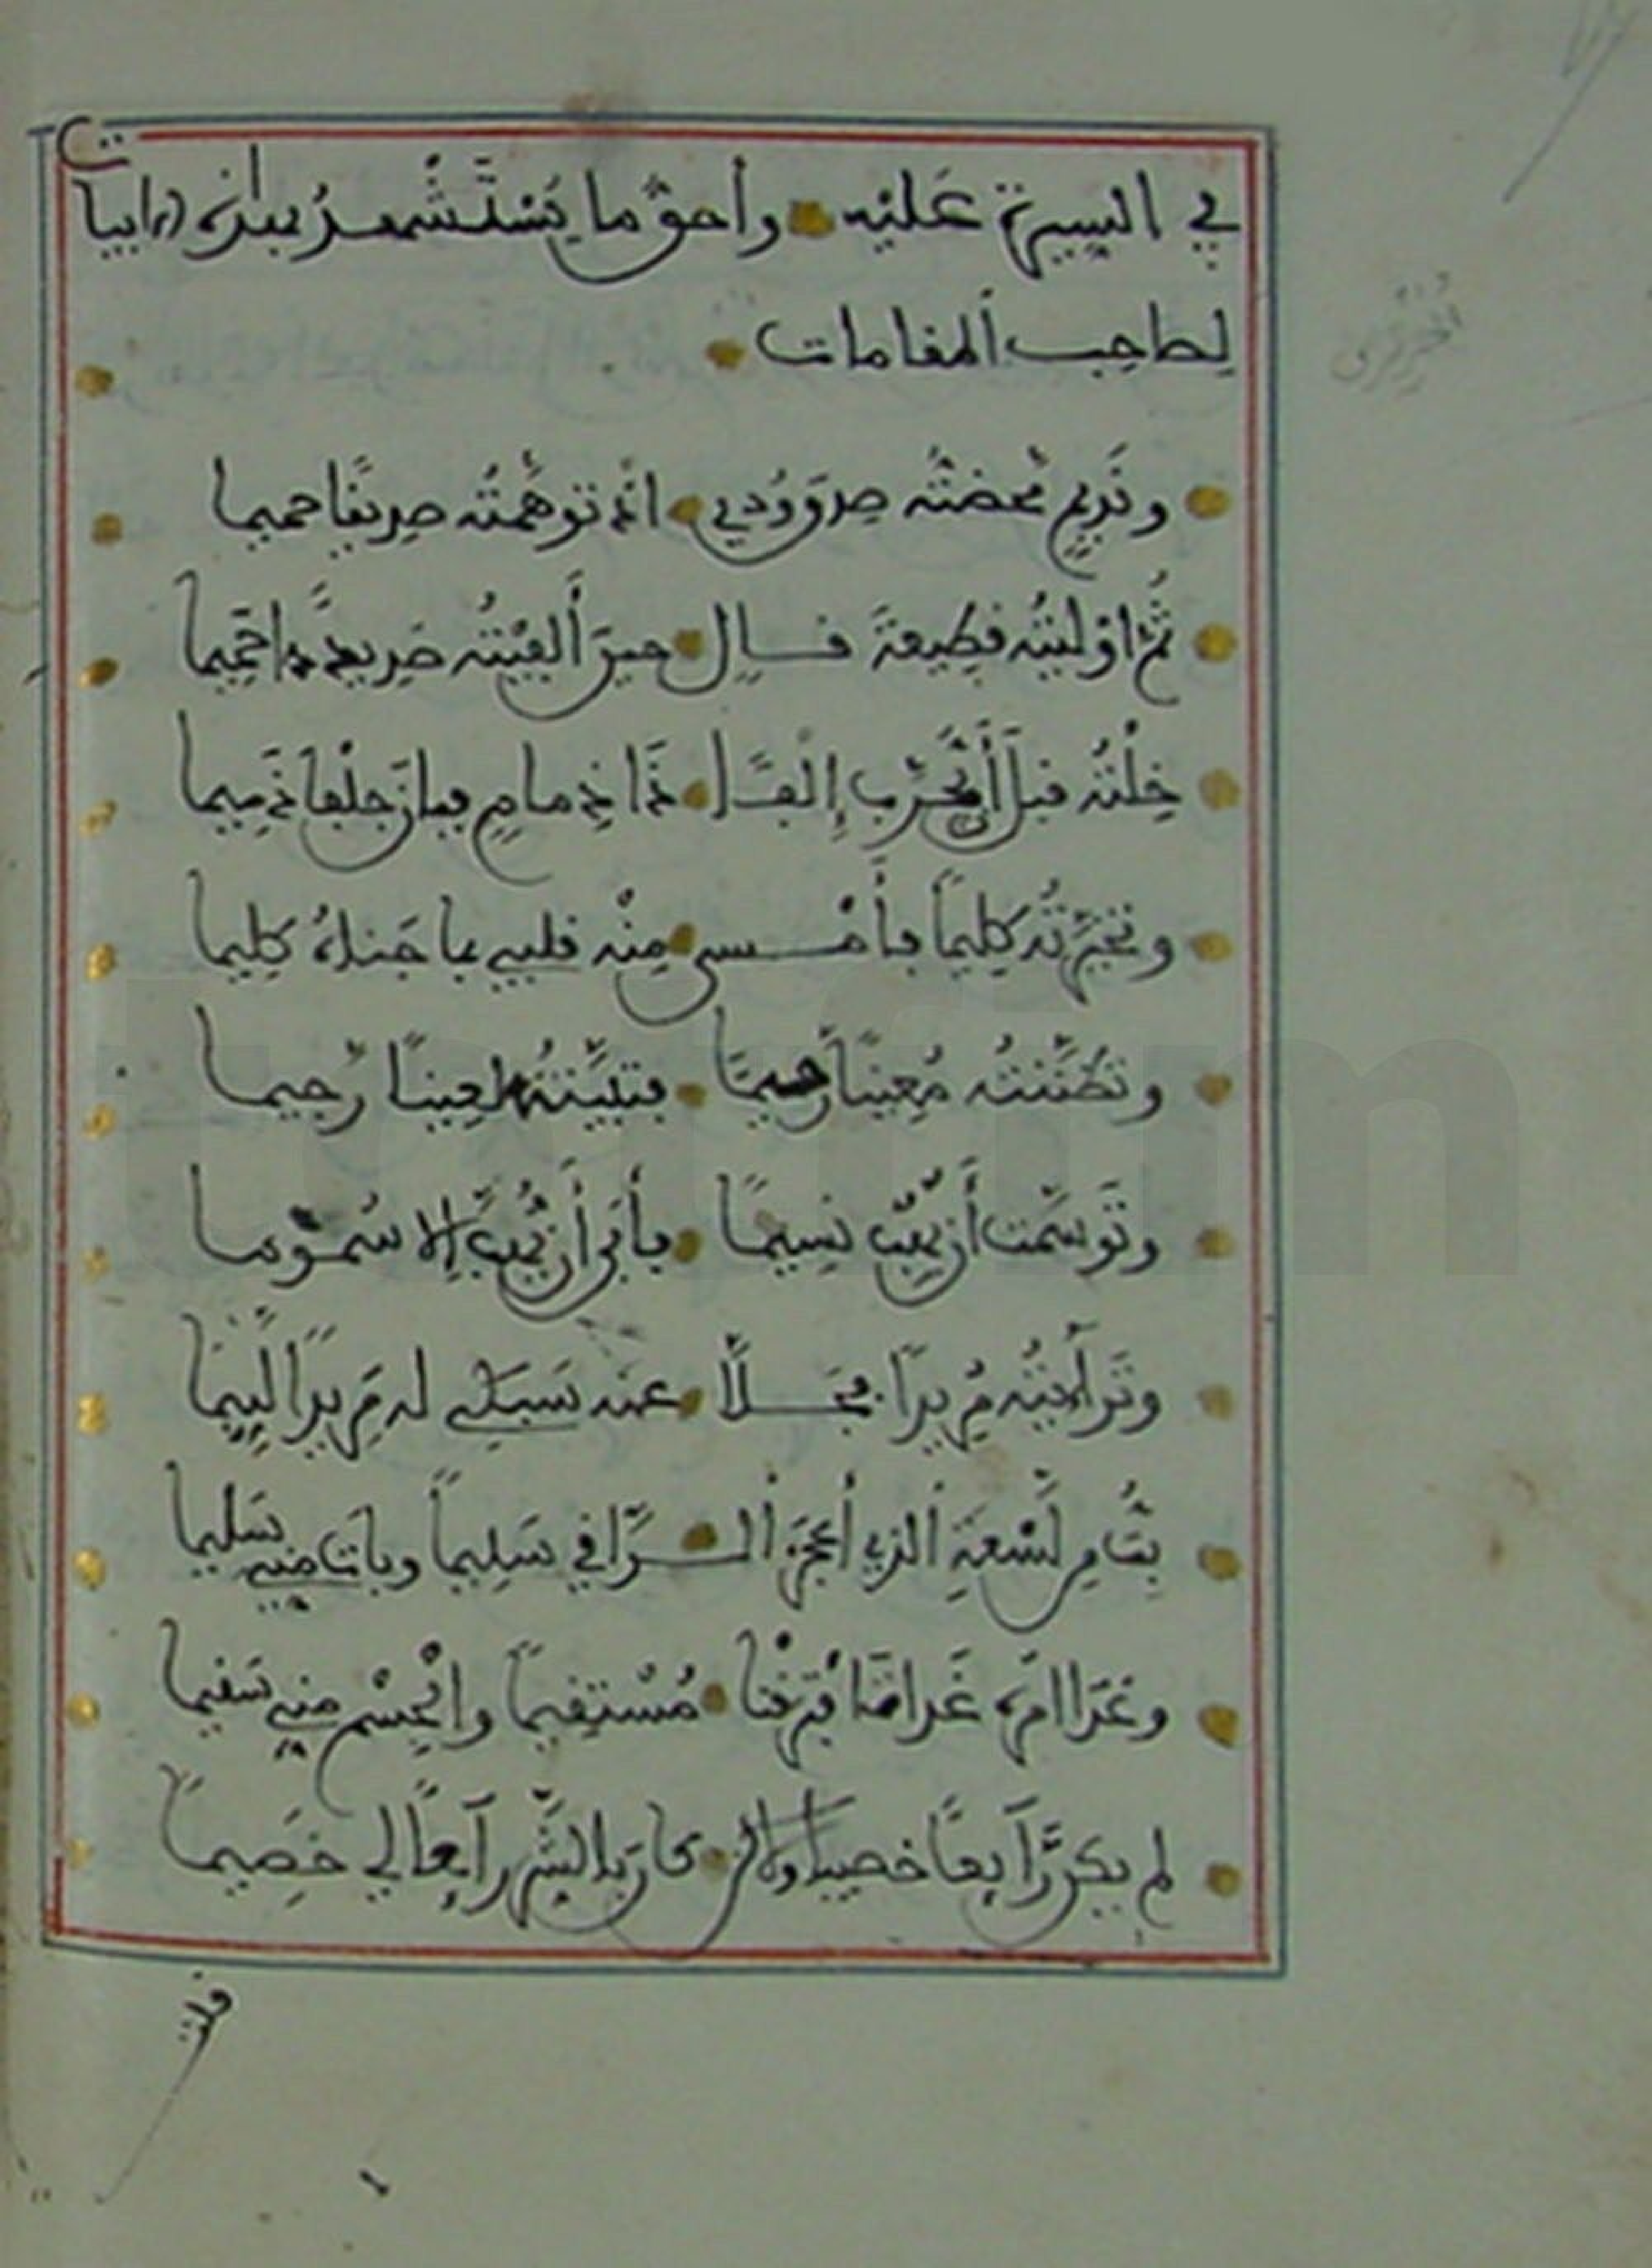 في السيرة عليه وأحق ما يستشهد بهذه الابيات
لصاحب المقامات
الحريري
ونديم محضته صدق ودي اذ توهمته صديقا حميما
ثم اوليته قطيعة قال حين ألفيته صديدا حميما
خلته قبل أن يجرب إلفا ذا ذمام فبان جلفا ذميما
وتخيرته كليما فأمسى منه قلبي بما جناه كليما
وتظننته معينا رحيما فتبينته لعينا رجيما
وتوسمت أن يهب نسيما فأبى أن يهب إلا سموما
وترآيته مريدا مجلا عنه سبكي له مريدا لئيما
بت من لسعة الذي أعجز الراقي سليما وبات مني سليما
وغدا امره غداة افترقنا مستقيما والجسم مني سقيما
لم يكن رآيعا خصيبا ولاكن كان بالشر رآيعا لي خصيما
قلت